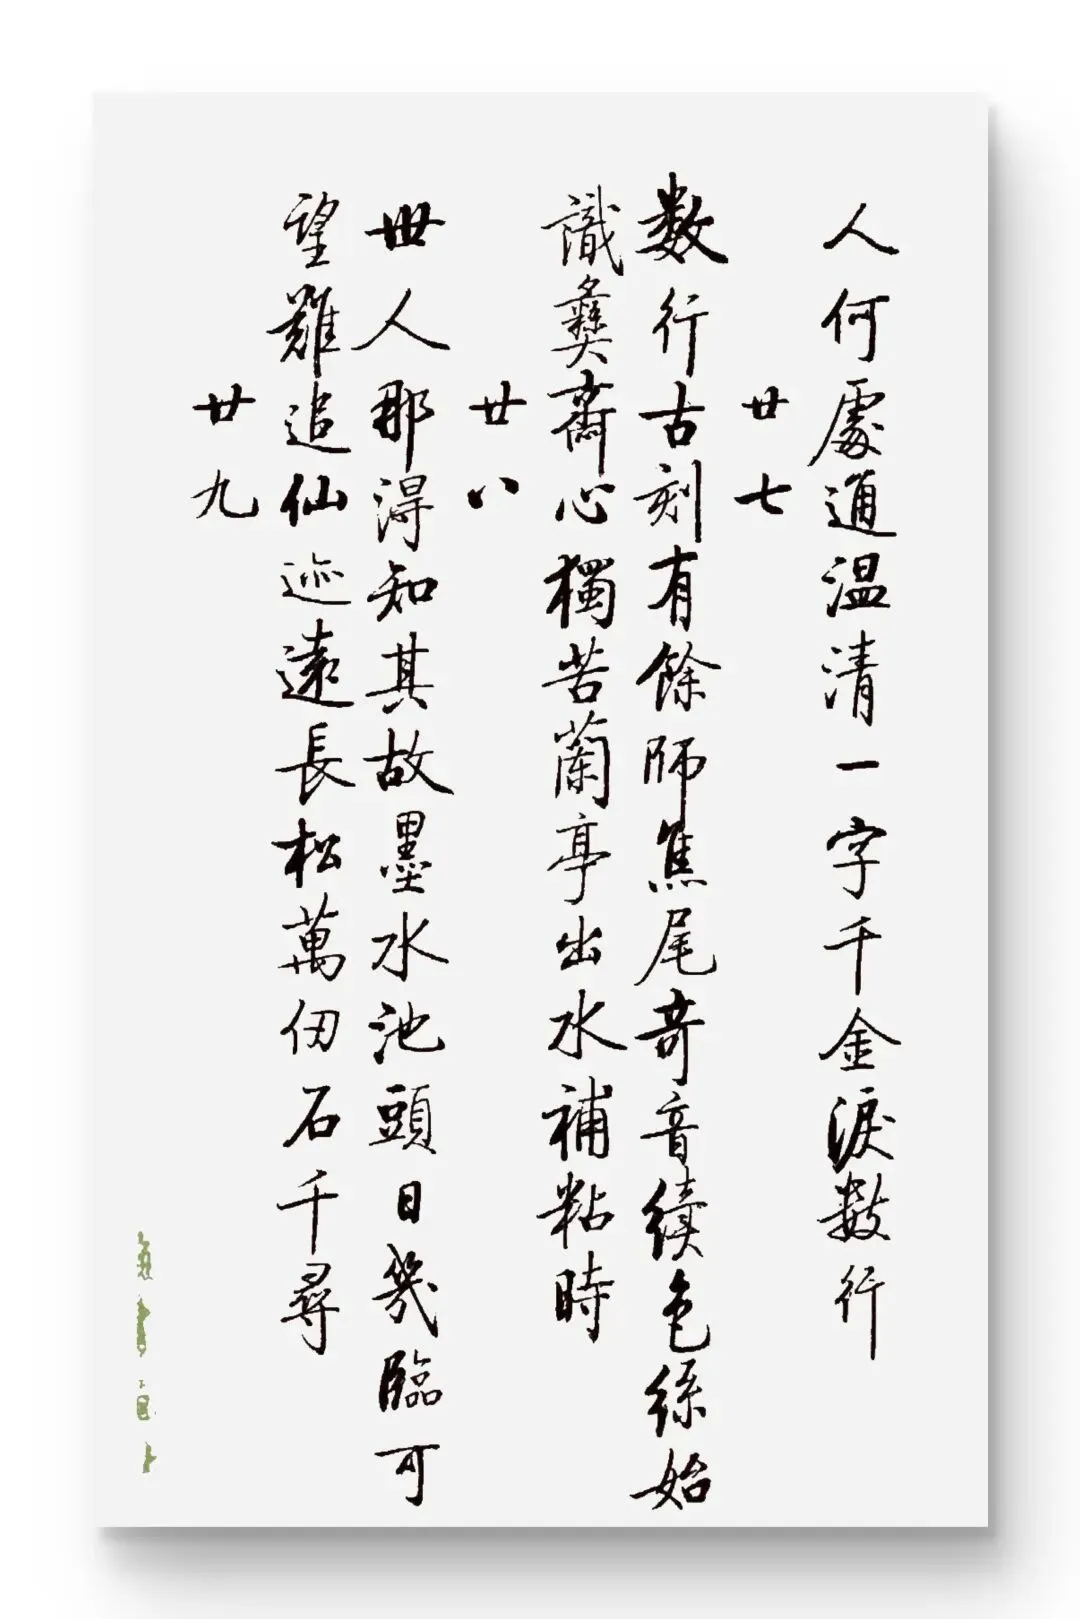 人何處通温清一字千金淚數行
廿七
数行古刻有餘師焦尾奇音續色絲始
識彝齋心獨苦蘭亭出水補粘時
廿八
世人那得知其故墨水池頭日幾臨可
望難追仙迹遠長松萬仞石千尋
廿九